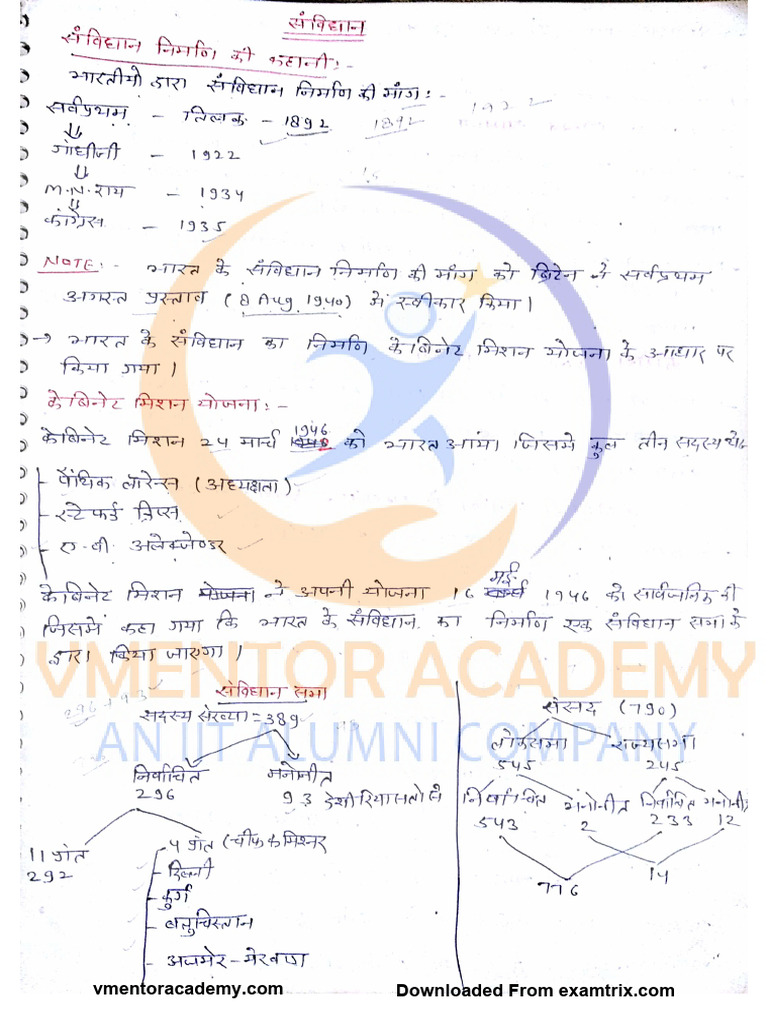 संविधान
संविधान निर्माण की कहानी:-
भारतीयो द्वारा संविधान निर्माण की मांग:-
सर्वप्रथम - तिलक - 1892 1892 1922
⇓
गांधीजी - 1922
⇓
M.N. राय - 1934
⇓
कांग्रेस - 1935
NOTE:- भारत के संविधान निर्माण की मांग को ब्रिटेन ने सर्वप्रथम
अगस्त प्रस्ताव (8 Aug 1940) में स्वीकार किया।
→ भारत के संविधान का निर्माण केबिनेट मिशन योजना के आधार पर
किया गया।
केबिनेट मिशन योजना:-
1946
केबिनेट मिशन 24 मार्च को भारत आया। जिसमे कुल तीन सदस्य थे
पैथिक लॉरेन्स (अध्यक्षता)
स्टेफर्ड क्रिप्स
ए. वी. अलेक्जेण्डर
मई
केबिनेट मिशन योजना ने अपनी योजना 16 मार्च 1946 को सार्वजनिक की
जिसमें कहा गया कि भारत के संविधान का निर्माण एक संविधान सभा के
द्वारा किया जाएगा।
VMENTOR ACADEMY
AN IIT ALUMNI COMPANY
296+93
संविधान सभा
सदस्य संख्या = 389
निर्वाचित मनोनीत
296 93 देशी रियासतो से
11 प्रांत 4 प्रांत (चीफ कमिश्नर
292
दिल्ली
कुर्ग
बलुचिस्तान
अजमेर-मेरवाडा
संसद (790)
लोकसभा राज्यसभा
545 245
निर्वाचित मनोनीत निर्वाचित मनोनीत
543 2 233 12
776 14
vmentoracademy.com Downloaded From examtrix.com